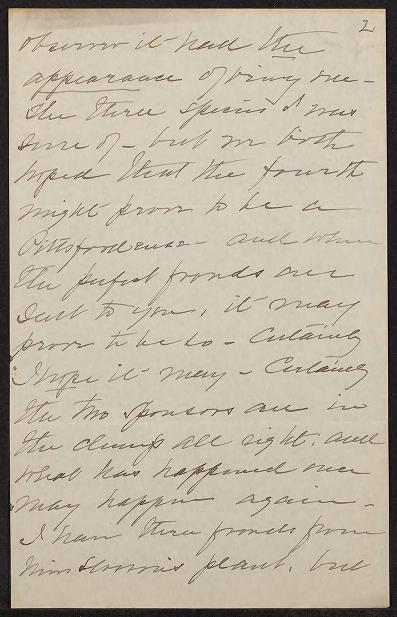 2
observer it had the
appearance of being one -
the three species I was
sure of - but we both
hoped that the fourth
might prove to be a
Pittsfordense - and when
the perfect fronds are
sent to you, it may
prove to be so - Certainly
I hope it may - Certainly
the two sponsors are in
the clump all right, and
what has happened once
may happen again -
I have three fronds from
Miss plant, but